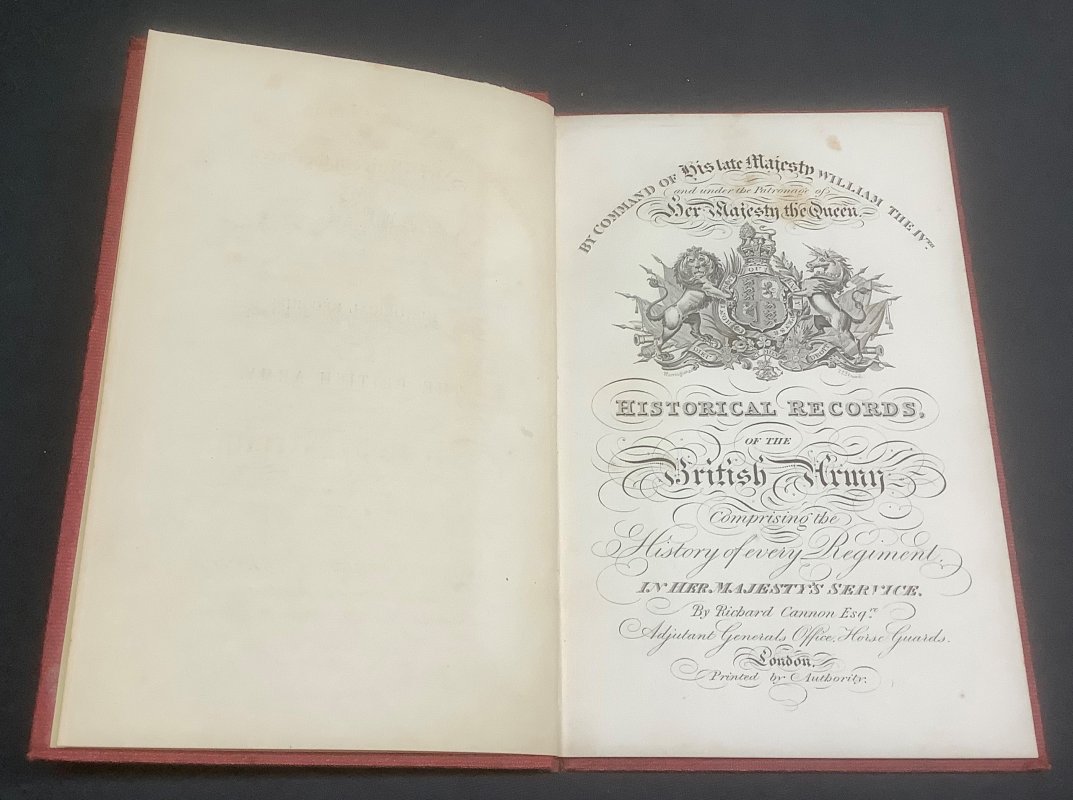 BY COMMAND OF His late Majesty WILLIAM THE IVTH
and under the Patronage of
Her Majesty the Queen.
HISTORICAL RECORDS,
OF THE
British Army
Comprising the
History of every Regiment
IN HER MAJESTY'S SERVICE.
By Richard Cannon Esqre
Adjutant Generals Office, Horse Guards.
London,
Printed by Authority.